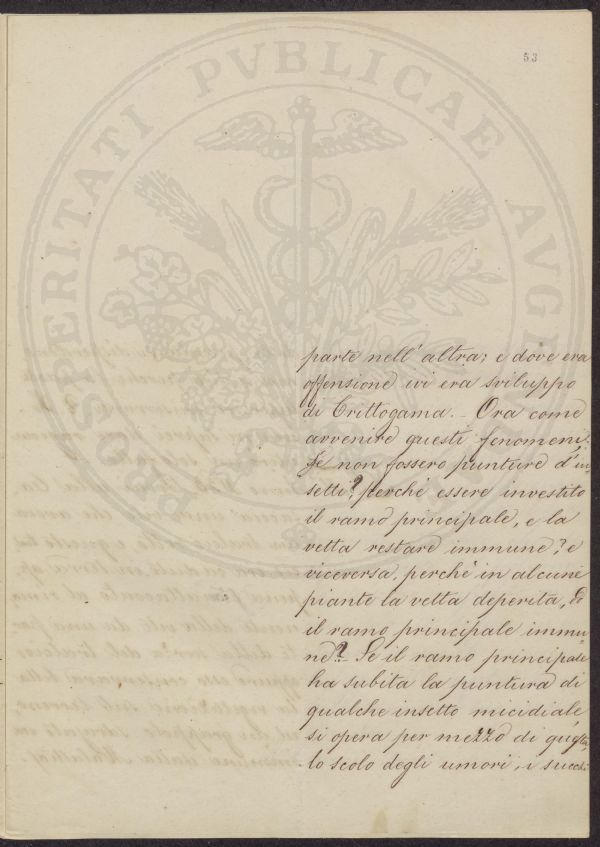 53
PROSPERITATI PVBLICAE AVGE
parte nell' altra; e dove era
offensione ivi era sviluppo
di Crittogama._ Ora come
avvenire questi fenomeni,
Se non fossero punture d'in
setti? perchè essere investito
il ramo principale, e la
vetta restare immune? e
viceversa, perchè in alcune
piante la vetta deperita, Ed
il ramo principale immu
ne? Se il ramo principale
ha subita la puntura di
qualche insetto micidiale,
si opera per mezzo di questa,
lo scolo degli umori, i succhi